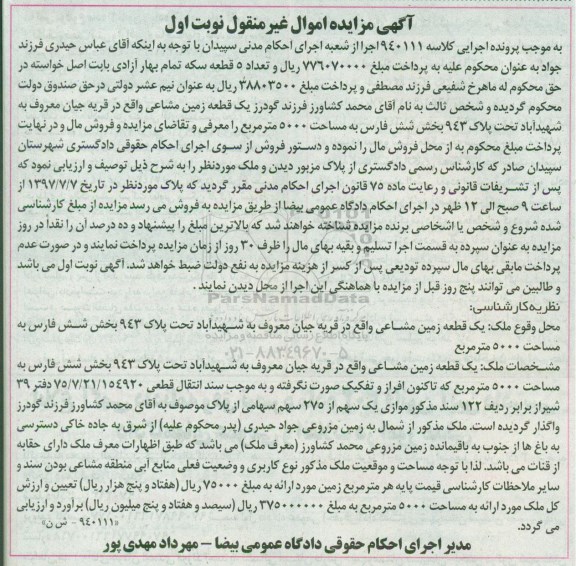 آگهی مزایده اموال غیرمنقول نوبت اول
به موجب پرونده اجرایی کلاسه ۹۴۰۱۱۱ اجرا از شعبه اجرای احکام مدنی سپیدان با توجه به اینکه آقای عباس حیدری فرزند
جواد به عنوان محکوم علیه به پرداخت مبلغ ۷۷۶۰۷۰۰۰۰ ریال و تعداد ۵ قطعه سکه تمام بهار آزادی بابت اصل خواسته در
حق محکوم له ماهرخ شفیعی فرزند مصطفی و پرداخت مبلغ ۳۸۸۰۳۵۰۰ ریال به عنوان نیم عشر دولتی درحق صندوق دولت
محکوم گردیده و شخص ثالث به نام آقای محمد کشاورز فرزند گودرز یک قطعه زمین مشاعی واقع در قریه جیان معروف به
شهیدآباد تحت پلاک ۹۴۳ بخش شش فارس به مساحت ۵۰۰۰ مترمربع را معرفی و تقاضای مزایده و فروش مال و در نهایت
پرداخت مبلغ محکوم به از محل فروش مال را نموده و دستور فروش از سوی اجرای احکام حقوقی دادگستری شهرستان
سپیدان صادر که کارشناس رسمی دادگستری از پلاک مزبور دیدن و ملک موردنظر را به شرح ذیل توصیف و ارزیابی نمود که
پس از تشریفات قانونی و رعایت ماده ۷۵ قانون اجرای احکام مدنی مقرر گردید که پلاک موردنظر در تاریخ ۱۳۹۷/۷/۷ از
ساعت ۹ صبح الی ۱۲ ظهر در اجرای احکام دادگاه عمومی بیضا از طریق مزایده به فروش می رسد مزایده از مبلغ کارشناسی
شده شروع و شخص یا اشخاصی برنده مزایده شناخته خواهند شد که بالاترین مبلغ را پیشنهاد و ده درصد آن را نقداً در روز
مزایده به عنوان سپرده به قسمت اجرا تسلیم و بقیه بهای مال را ظرف ۳۰ روز از زمان مزایده پرداخت نمایند و در صورت عدم
پرداخت مابقی بهای مال سپرده تودیعی پس از کسر از هزینه مزایده به نفع دولت ضبط خواهد شد. آگهی نوبت اول می باشد
و طالبین می توانند پنج روز قبل از مزایده با هماهنگی این اجرا از محل دیدن نمایند.
نظریه کارشناسی:
محل وقوع ملک: یک قطعه زمین مشاعی واقع در قریه جیان معروف به شهیدآباد تحت پلاک ۹۴۳ بخش شش فارس به
مساحت ۵۰۰۰ مترمربع
مشخصات ملک: یک قطعه زمین مشاعی واقع در قریه جیان معروف به شهیدآباد تحت پلاک ۹۴۳ بخش شش فارس به
مساحت ۵۰۰۰ مترمربع که تاکنون افراز و تفکیک صورت نگرفته و به موجب سند انتقال قطعی ۷۵/۷/۲۱/۱۵۴۹۲۰ دفتر ۳۹
شیراز برابر ردیف ۱۲۲ سند مذکور موازی یک سهم از ۲۷۵ سهم سهامی از پلاک موصوف به آقای محمد کشاورز فرزند گودرز
واگذار گردیده است. ملک مذکور از شمال به زمین مزروعی جواد حیدری (پدر محکوم علیه) از شرق به جاده خاکی دسترسی
به باغ ها از جنوب به باقیمانده زمین مزروعی محمد کشاورز (معرف ملک) می باشد که طبق اظهارات معرف ملک دارای حقابه
از قنات می باشد. لذا با توجه مساحت و موقعیت ملک مذکور نوع کاربری و وضعیت فعلی منابع آبی منطقه مشاعی بودن سند و
سایر ملاحظات کارشناسی قیمت پایه هر مترمربع زمین مورد ارائه به مبلغ ۷۵۰۰۰ ریال (هفتاد و پنج هزار ریال) تعیین و ارزش
کل ملک مورد ارائه به مساحت ۵۰۰۰ مترمربع به مبلغ ۳۷۵۰۰۰۰۰۰ ریال (سیصد و هفتاد و پنج میلیون ریال) برآورد و ارزیابی
می گردد.
«۹۴۰۱۱۱ - ش ن»
مدیر اجرای احکام حقوقی دادگاه عمومی بیضا - مهرداد مهدی پور
ParsNamadData
۰۲۱-۸۸۳۴۹۶۷۰-۵